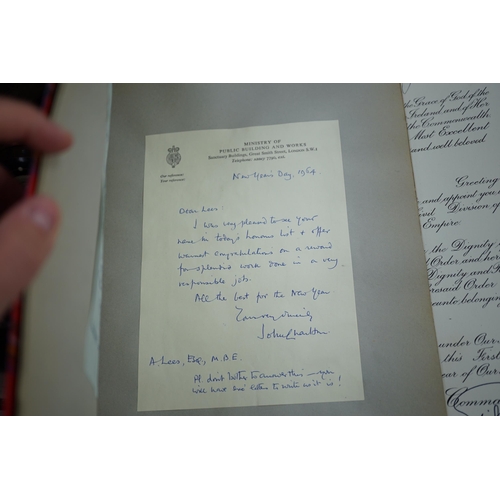 MINISTRY OF
PUBLIC BUILDING AND WORKS
Sanctuary Buildings, Great Smith Street, London S.W.1
Our reference:
Your reference:
New Year's Day, 1964
Dear Lees
I was very pleased to see your
name in today's honours list & offer
warmest congratulations on a reward
for splendid work done in a very
responsible job.
All the best for the New Year
Yours sincerely
John
A Lees, Esq., M.B.E.
PS dont bother to answer this — you
will have letters to write as it is!
the Grace of God of the
Ireland and of Her
the Commonwealth
Most Excellent
and well beloved
Greeting
and appoint you
Division of
Empire
the Dignity
Order and
Dignity and
Order
belonging
under Our
this First
year of Our